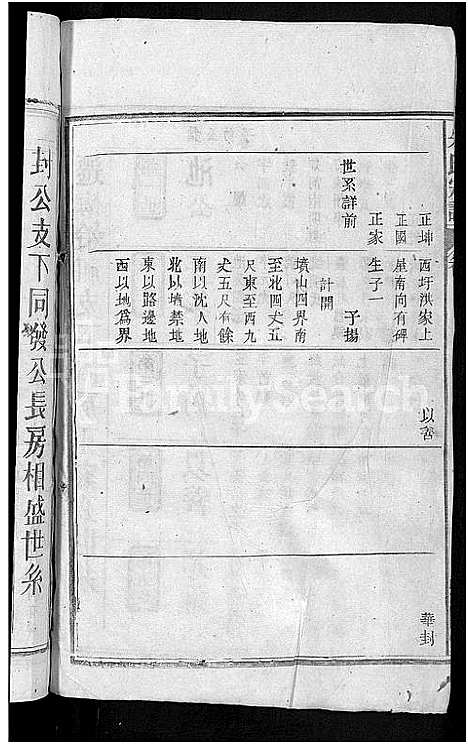 正坤
正國
正家
世系詳前
西圩洪家上
屋南向有碑
生子一
子揚
計開
墳山四界南
至北四丈五
尺東至西九
丈五尺有餘
南以沈人地
北以墻禁地
東以路邊地
西以地為界
以
華封
封公支下同發公長房相盛世系
FamilySearch